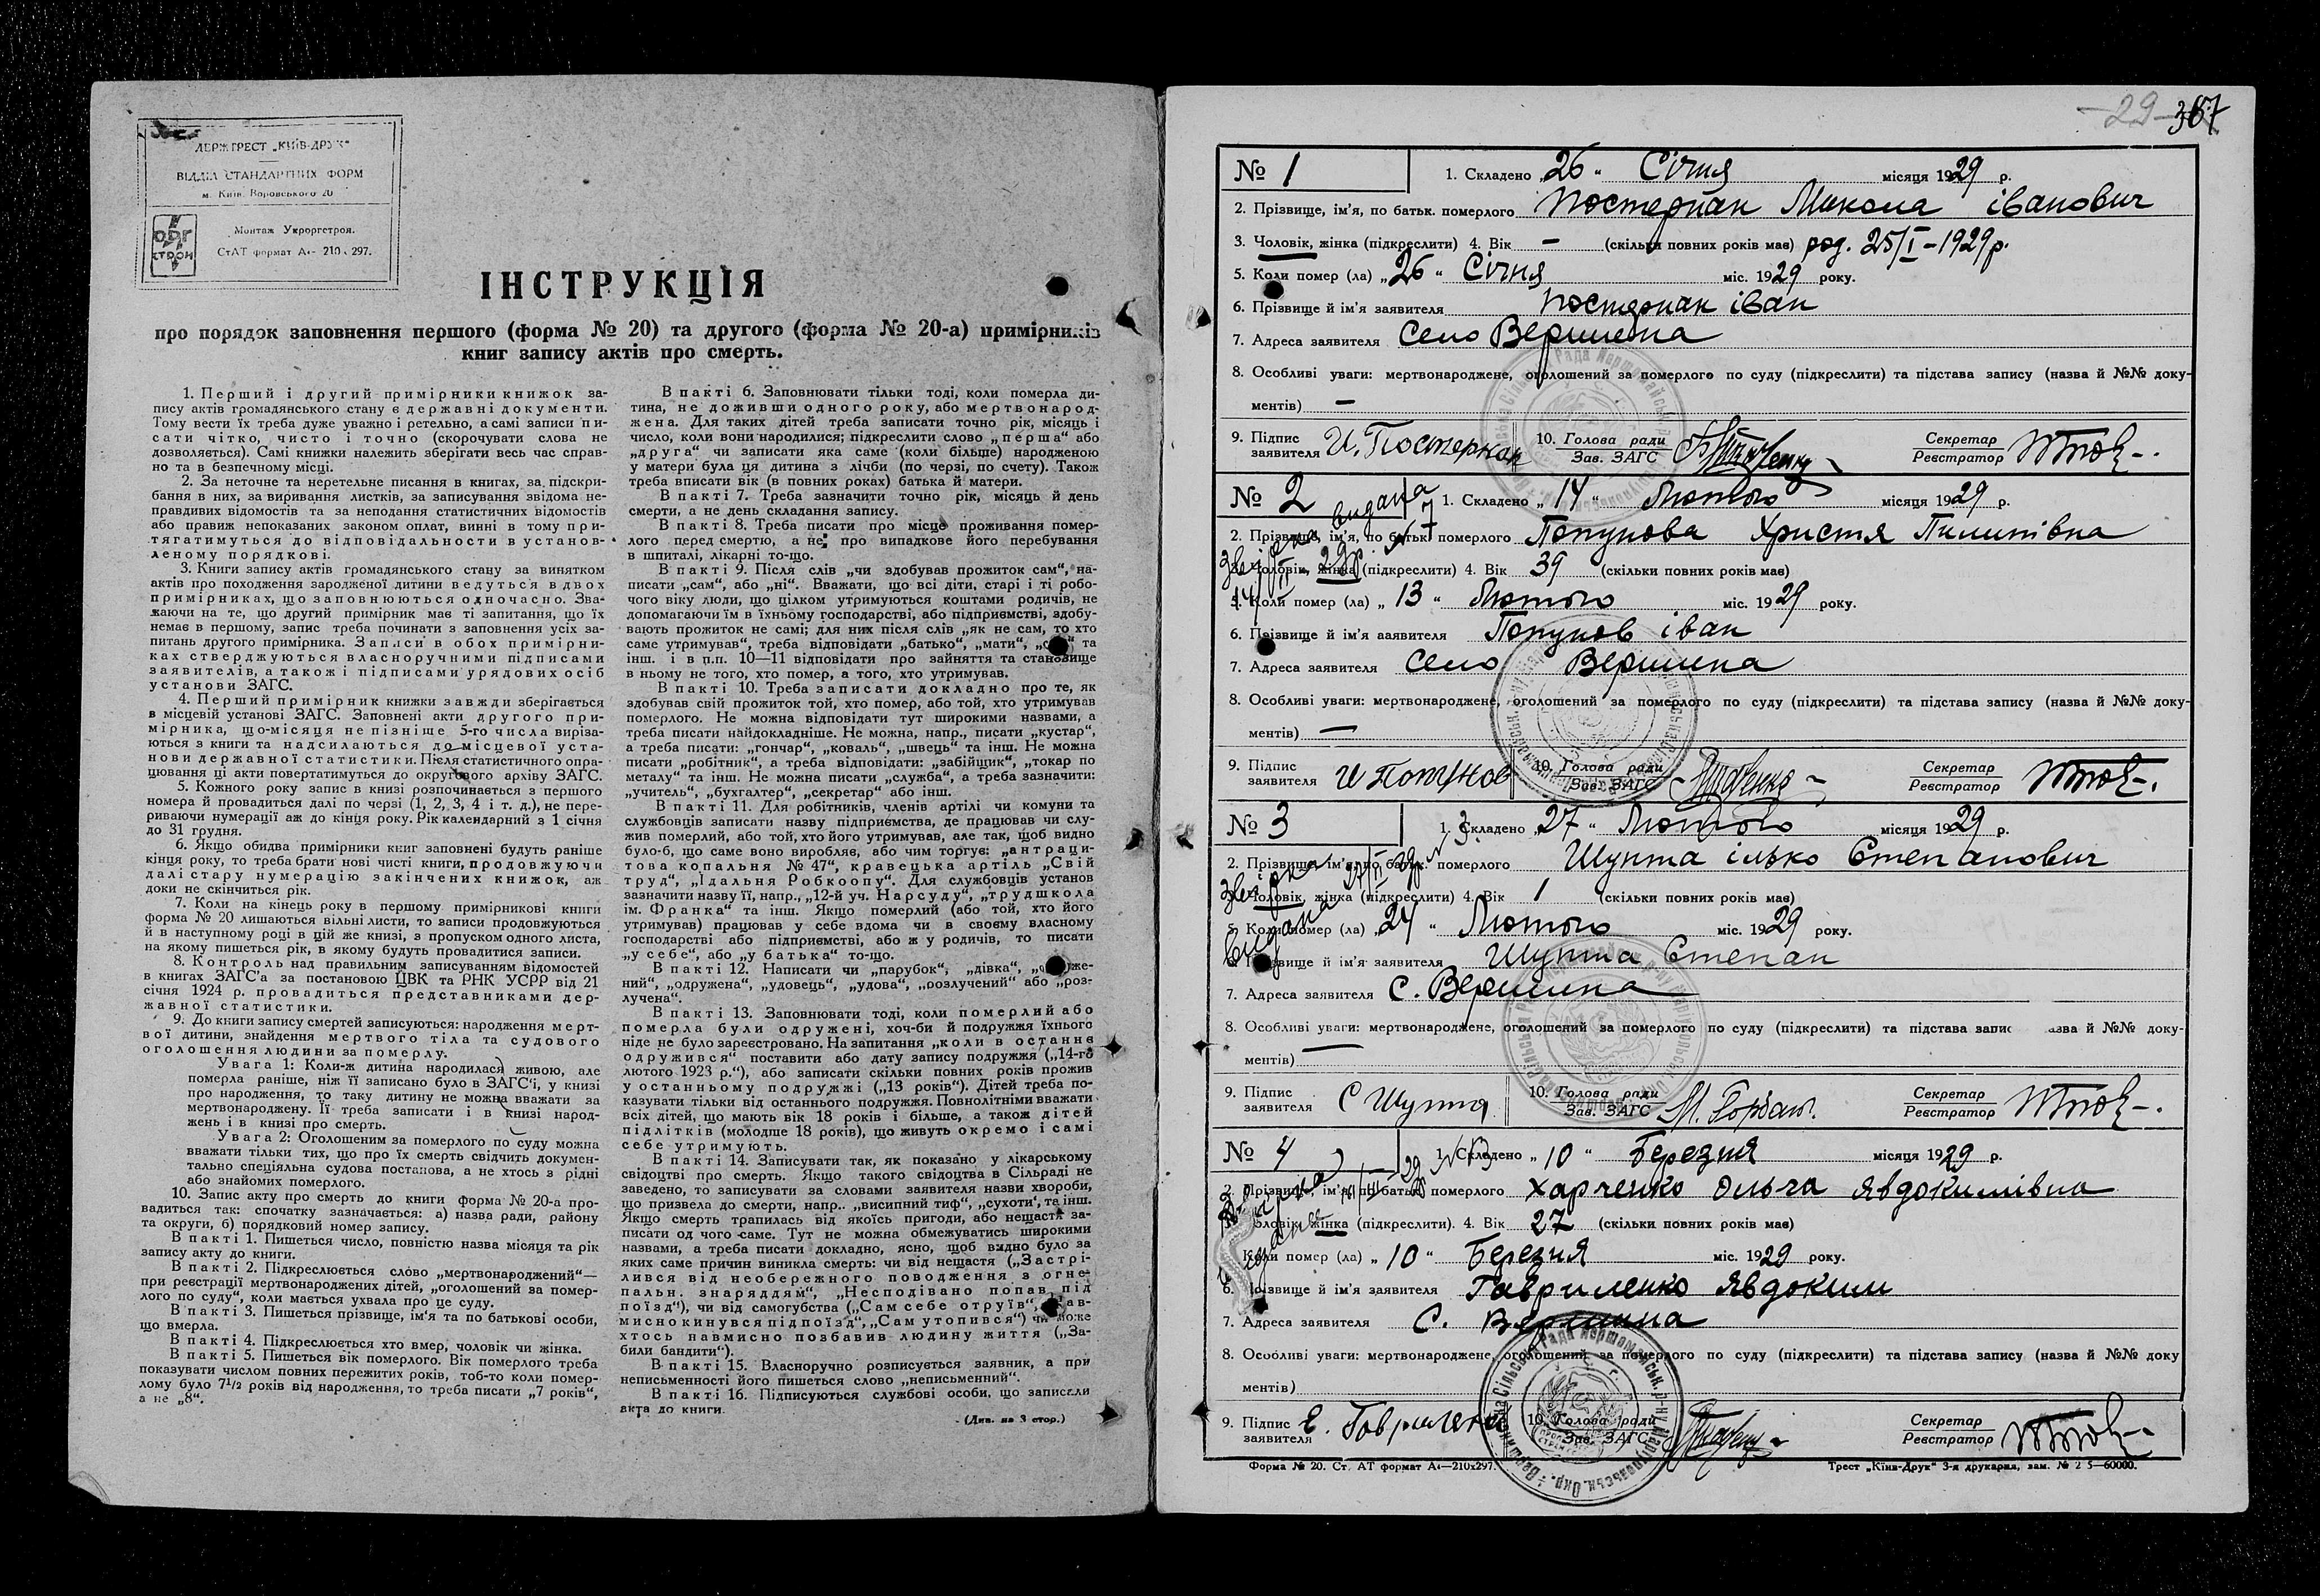 ДЕРЖТРЕСТ „КИЇВ-ДРУК“
ВІДДІЛ СТАНДАРТНИХ ФОРМ
м. Київ, Воровського 20
ОРГ
СТРОЙ
Монтаж Укроргстроя.
СтАТ формат А4 - 210 x 297.
ІНСТРУКЦІЯ
про порядок заповнення першого (форма № 20) та другого (форма № 20-а) примірників
книг запису актів про смерть.
1. Перший і другий примірники книжок за-
пису актів громадянського стану є державні документи.
Тому вести їх треба дуже уважно і ретельно, а самі записи пи-
сати чітко, чисто і точно (скорочувати слова не
дозволяється). Самі книжки належить зберігати весь час справ-
но та в безпечному місці.
2. За неточне та неретельне писання в книгах, за підскри-
бання в них, за виривання листків, за записування звідома не-
правдивих відомостів та за неподання статистичних відомостів
або правиж непоказаних законом оплат, винні в тому при-
тягатимуться до відповідальности в установ-
леному порядкові.
3. Книги запису актів громадянського стану за винятком
актів про походження зародженої дитини ведуться в двох
примірниках, що заповнюються одночасно. Зва-
жаючи на те, що другий примірник має ті запитання, що їх
немає в першому, запис треба починати з заповнення усіх за-
питань другого примірника. Записи в обох примірни-
ках стверджуються власноручними підписами
заявителів, а також і підписами урядових осіб
установи ЗАГС.
4. Перший примірник книжки завжди зберігається
в місцевій установі ЗАГС. Заповнені акти другого при-
мірника, що-місяця не пізніше 5-го числа виріза-
ються з книги та надсилаються до місцевої уста-
нови державної статистики. Після статистичного опра-
цювання ці акти повертатимуться до округового архіву ЗАГС.
5. Кожного року запис в книзі розпочинається з першого
номера й провадиться далі по черзі (1, 2, 3, 4 і т. д.), не пере-
риваючи нумерації аж до кінця року. Рік календарний з 1 січня
до 31 грудня.
6. Якщо обидва примірники книг заповнені будуть раніше
кінця року, то треба брати нові чисті книги, продовжуючи
далі стару нумерацію закінчених книжок, аж
доки не скінчиться рік.
7. Коли на кінець року в першому примірникові книги
форма № 20 лишаються вільні листи, то записи продовжуються
й в наступному році в цій же книзі, з пропуском одного листа,
на якому пишеться рік, в якому будуть провадитися записи.
8. Контроль над правильним записуванням відомостей
в книгах ЗАГС'а за постановою ЦВК та РНК УСРР від 21
січня 1924 р. провадиться представниками дер-
жавної статистики.
9. До книги запису смертей записуються: народження мерт-
вої дитини, знайдення мертвого тіла та судового
оголошення людини за померлу.
Увага 1: Коли-ж дитина народилася живою, але
померла раніше, ніж її записано було в ЗАГС'і, у книзі
про народження, то таку дитину не можна вважати за
мертвонароджену. Її треба записати і в книзі народ-
жень і в книзі про смерть.
Увага 2: Оголошеним за померлого по суду можна
вважати тільки тих, що про їх смерть свідчить докумен-
тально спеціяльна судова постанова, а не хтось з рідні
або знайомих померлого.
10. Запис акту про смерть до книги форма № 20-а про-
вадиться так: спочатку зазначається: а) назва ради, району
та округи, б) порядковий номер запису.
В пакті 1. Пишеться число, повністю назва місяця та рік
запису акту до книги.
В пакті 2. Підкреслюється слово „мертвонароджений“—
при реєстрації мертвонароджених дітей, „оголошений за помер-
лого по суду“, коли мається ухвала про це суду.
В пакті 3. Пишеться прізвище, ім'я та по батькові особи,
що вмерла.
В пакті 4. Підкреслюється хто вмер, чоловік чи жінка.
В пакті 5. Пишеться вік померлого. Вік померлого треба
показувати числом повних пережитих років, тоб-то коли помер-
лому було 7½ років від народження, то треба писати „7 років“,
а не „8“.
В пакті 6. Заповнювати тільки тоді, коли померла ди-
тина, не доживши одного року, або мертвонарод-
жена. Для таких дітей треба записати точно рік, місяць і
число, коли вони народилися; підкреслити слово „перша“ або
„друга“ чи записати яка саме (коли більше) народженою
у матери була ця дитина з лічби (по черзі, по счету). Також
треба вписати вік (в повних роках) батька й матери.
В пакті 7. Треба зазначити точно рік, місяць й день
смерти, а не день складання запису.
В пакті 8. Треба писати про місце проживання помер-
лого перед смертю, а не про випадкове його перебування
в шпиталі, лікарні то-що.
В пакті 9. Після слів „чи здобував прожиток сам“, на-
писати „сам“, або „ні“. Вважати, що всі діти, старі і ті робо-
чого віку люди, що цілком утримуються коштами родичів, не
допомагаючи їм в їхньому господарстві, або підприємстві, здобу-
вають прожиток не самі; для них після слів „як не сам, то хто
саме утримував“, треба відповідати „батько“, „мати“, та
інш. і в п.п. 10—11 відповідати про зайняття та становище
в ньому не того, хто помер, а того, хто утримував.
В пакті 10. Треба записати докладно про те, як
здобував свій прожиток той, хто помер, або той, хто утримував
померлого. Не можна відповідати тут широкими назвами, а
треба писати найдокладніше. Не можна, напр., писати „кустар“,
а треба писати: „гончар“, „коваль“, „швець“ та інш. Не можна
писати „робітник“, а треба відповідати: „забійщик“, „токар по
металу“ та інш. Не можна писати „служба“, а треба зазначити:
„учитель“, „бухгалтер“, „секретар“ або інш.
В пакті 11. Для робітників, членів артілі чи комуни та
службовців записати назву підприємства, де працював чи слу-
жив померлий, або той, хто його утримував, але так, щоб видно
було-б, що саме воно виробляє, або чим торгує: „антраци-
това копальня № 47“, кравецька артіль „Свій
труд“, „Їдальня Робкоопу“. Для службовців установ
зазначити назву її, напр., „12-й уч. Нарсуду“, „трудшкола
ім. Франка“ та інш. Якщо померлий (або той, хто його
утримував) працював у себе вдома чи в своєму власному
господарстві або підприємстві, або ж у родичів, то писати
„у себе“, або „у батька“ то-що.
В пакті 12. Написати чи „парубок“, „дівка“, „одруже-
ний“, „одружена“, „удовець“, „удова“, „розлучений“ або „роз-
лучена“.
В пакті 13. Заповнювати тоді, коли померлий або
померла були одружені, хоч-би й подружжя їхнього
ніде не було зареєстровано. На запитання „коли в останнє
одружився“ поставити або дату запису подружжя („14-го
лютого 1923 р.“), або записати скільки повних років прожив
у останньому подружжі („13 років“). Дітей треба по-
казувати тільки від останнього подружжя. Повнолітніми вважати
всіх дітей, що мають вік 18 років і більше, а також дітей
підлітків (молодше 18 років), що живуть окремо і самі
себе утримують.
В пакті 14. Записувати так, як показано у лікарському
свідоцтві про смерть. Якщо такого свідоцтва в Сільраді не
заведено, то записувати за словами заявителя назви хвороби,
що призвела до смерти, напр.. „висипний тиф“, „сухоти“, та інш.
Якщо смерть трапилась від якоїсь пригоди, або нещастя за-
писати од чого саме. Тут не можна обмежуватись широкими
назвами, а треба писати докладно, ясно, щоб видно було за
яких саме причин виникла смерть: чи від нещастя („Застрі-
лився від необережного поводження з огне-
пальн. знаряддям“, „Несподівано попав під
поїзд“), чи від самогубства („Сам себе отруїв“, „нав-
мисно кинувся під поїзд“, „Сам утопився“) чи може
хтось навмисно позбавив людину життя („За-
били бандити“).
В пакті 15. Власноручно розписується заявник, а при
неписьменності його пишеться слово „неписьменний“.
В пакті 16. Підписуються службові особи, що записали
акта до книги.
(Див. на 3 стор.)
29 367
№ 1 1. Складено „26“ Січня місяця 1929 р.
2. Прізвище, ім'я, по батьк. померлого Постернак Микола іванович
3. Чоловік, жінка (підкреслити) 4. Вік — (скільки повних років має) род. 25/I-1929р.
5. Коли помер (ла) „26“ Січня міс. 1929 року.
6. Прізвище й ім'я заявителя Постернак іван
7. Адреса заявителя Село Вершина
8. Особливі уваги: мертвонароджене, оголошений за померлого по суду (підкреслити) та підстава запису (назва й №№ доку-
ментів) —
9. Підпис заявителя И. Постернак 10. Голова ради Зав. ЗАГС Секретар Реєстратор
№ 2 видана 1. Складено „14“ Лютого місяця 1929 р.
2. Прізвище, ім'я, по батьк. померлого Попунова Христя Пилипівна
3. Чоловік, жінка (підкреслити) 4. Вік 39 (скільки повних років має)
5. Коли помер (ла) „13“ Лютого міс. 1929 року.
6. Прізвище й ім'я заявителя Попунов іван
7. Адреса заявителя Село Вершина
8. Особливі уваги: мертвонароджене, оголошений за померлого по суду (підкреслити) та підстава запису (назва й №№ доку-
ментів) —
9. Підпис заявителя И Попунов 10. Голова ради Зав. ЗАГС Секретар Реєстратор
№ 3 1. Складено „27“ Лютого місяця 1929 р.
2. Прізвище, ім'я, по батьк. померлого Шупта ілько Степанович
3. Чоловік, жінка (підкреслити) 4. Вік 1 (скільки повних років має)
видана
5. Коли помер (ла) „24“ Лютого міс. 1929 року.
6. Прізвище й ім'я заявителя Шупта Степан
7. Адреса заявителя С. Вершина
8. Особливі уваги: мертвонароджене, оголошений за померлого по суду (підкреслити) та підстава запис азва й №№ доку-
ментів) —
9. Підпис заявителя С Шупта 10. Голова ради Зав. ЗАГС М. Горбань. Секретар Реєстратор
№ 4 1. Складено „10“ Березня місяця 1929 р.
2. Прізвище, ім'я, по батьк. померлого Харченко Ольга Явдокимівна
3. Чоловік, жінка (підкреслити). 4. Вік 27 (скільки повних років має)
5. Коли помер (ла) „10“ Березня міс. 1929 року.
6. Прізвище й ім'я заявителя Гавриленко Явдоким
7. Адреса заявителя С. Вершина
8. Особливі уваги: мертвонароджене, оголошений за померлого по суду (підкреслити) та підстава запису (назва й №№ доку
ментів)
9. Підпис заявителя Е. Гавриленко 10. Голова ради Зав. ЗАГС Секретар Реєстратор
Форма № 20. Ст. АТ формат А4—210х297.
Трест „Київ-Друк“ 3-я друкарня, зам. № 2 5—60000.